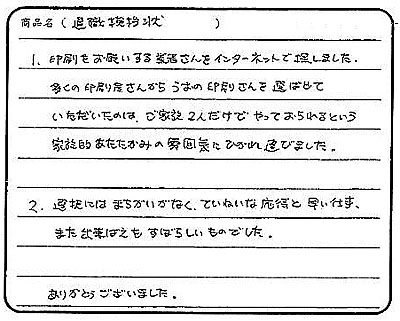 商品名（退職挨拶状　　）
1. 印刷をお願いする業者さんをインターネットで探しました.
多くの印刷屋さんから うおの印刷さんを 選ばせて
いただいたのは、ご家族2人だけで やっておられるという
家族的あたたかみの 雰囲気に ひかれ 選びました。
2. 選択には まちがいがなく、ていねいな 応待と 早い仕事、
また 出来ばえも すばらしい ものでした。
ありがとう ございました。